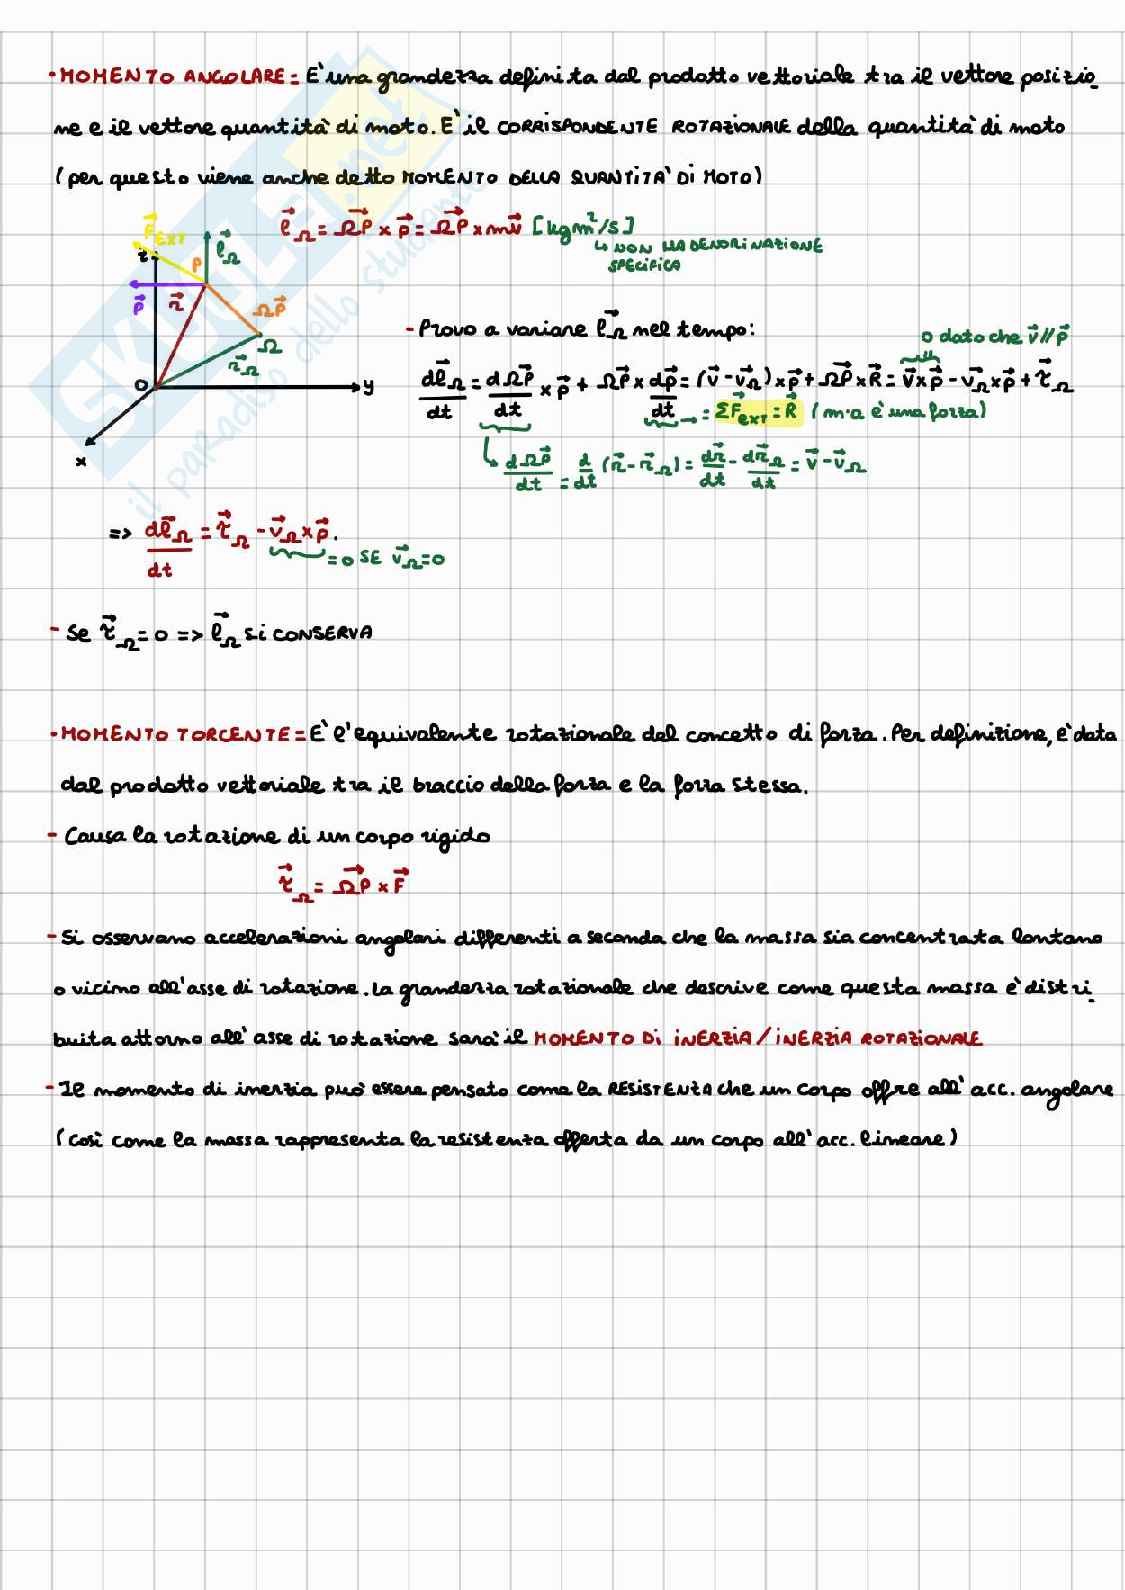 - MOMENTO ANGOLARE = E' una grandezza definita dal prodotto vettoriale tra il vettore posizio_
ne e il vettore quantità di moto. E' il CORRISPONDENTE ROTAZIONALE della quantità di moto
(per questo viene anche detto MOMENTO DELLA QUANTITA' DI MOTO)
l⃗_Ω = ΩP⃗ × p⃗ = ΩP⃗ × mv⃗ [kgm²/s]
↳ NON HA DENOMINAZIONE
SPECIFICA
F⃗_EXT
z
l⃗_Ω
P
p⃗
r⃗
ΩP⃗
Ω
r⃗_Ω
O
y
x
- Provo a variare l⃗_Ω nel tempo:
0 dato che v⃗ // p⃗
dl⃗_Ω/dt = dΩP⃗/dt × p⃗ + ΩP⃗ × dp⃗/dt = (v⃗ - v⃗_Ω) × p⃗ + ΩP⃗ × R⃗ = v⃗ × p⃗ - v⃗_Ω × p⃗ + τ⃗_Ω
→ = ΣF⃗_ext = R⃗ (m·a è una forza)
↳ dΩP⃗/dt = d/dt (r⃗ - r⃗_Ω) = dr⃗/dt - dr⃗_Ω/dt = v⃗ - v⃗_Ω
=> dl⃗_Ω/dt = τ⃗_Ω - v⃗_Ω × p⃗.
= 0 SE v⃗_Ω = 0
- Se τ⃗_Ω = 0 => l⃗_Ω si CONSERVA
- MOMENTO TORCENTE = E' l'equivalente rotazionale del concetto di forza. Per definizione, è data
dal prodotto vettoriale tra il braccio della forza e la forza stessa.
- Causa la rotazione di un corpo rigido
τ⃗_Ω = ΩP⃗ × F⃗
- Si osservano accelerazioni angolari differenti a seconda che la massa sia concentrata lontano
o vicino all'asse di rotazione. La grandezza rotazionale che descrive come questa massa è distri_
buita attorno all'asse di rotazione sarà il MOMENTO DI INERZIA / INERZIA ROTAZIONALE
- Il momento di inerzia può essere pensato come la RESISTENZA che un corpo offre all'acc. angolare
(così come la massa rappresenta la resistenza offerta da un corpo all'acc. lineare)
SKUOLA.net
il paradiso dello studente